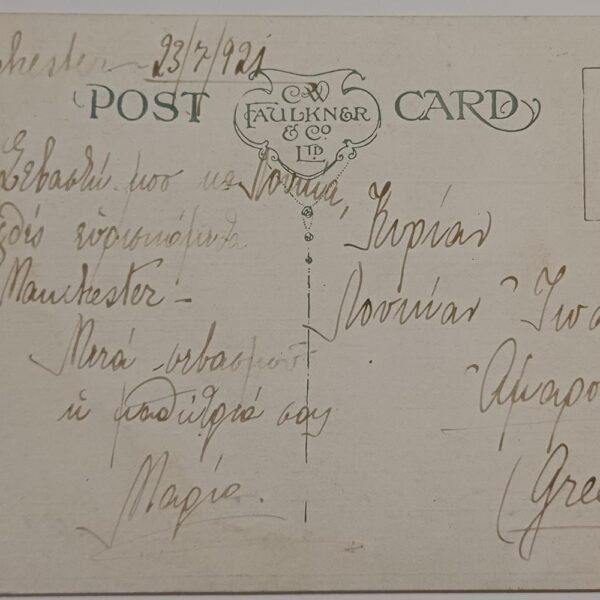 chester 23/7/921
POST CARD
C.W. FAULKNER & Co. LTD.
Σεβαστή μου κα Λουκία,
εὑρισκόμεθα
Manchester –
Μετά σεβασμοῦ
ἡ μαθήτριά σας
Μαρία.
Κυρίαν
Λουκίαν Ἰωα
Ἀμαρο
(Gree